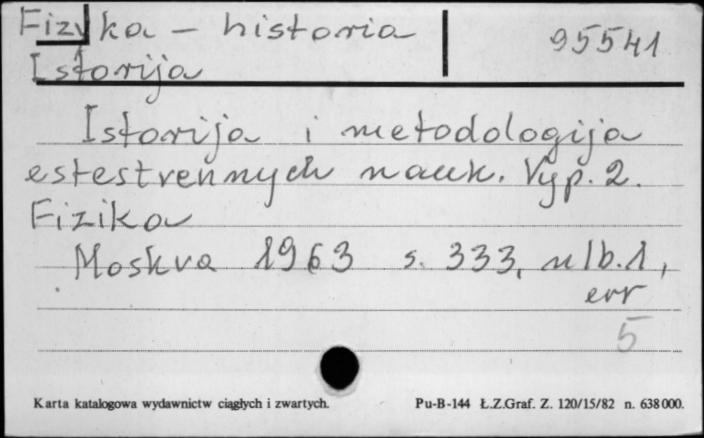 Fizyka - historia 95541
Istorija
Istorija i metodologija
estestvennych nauk. Vyp. 2.
Fizika
Moskva 1963 s. 333, nlb. 1,
err
5
Karta katalogowa wydawnictw ciągłych i zwartych. Pu-B-144 Ł.Z.Graf. Z. 120/15/82 n. 638000.